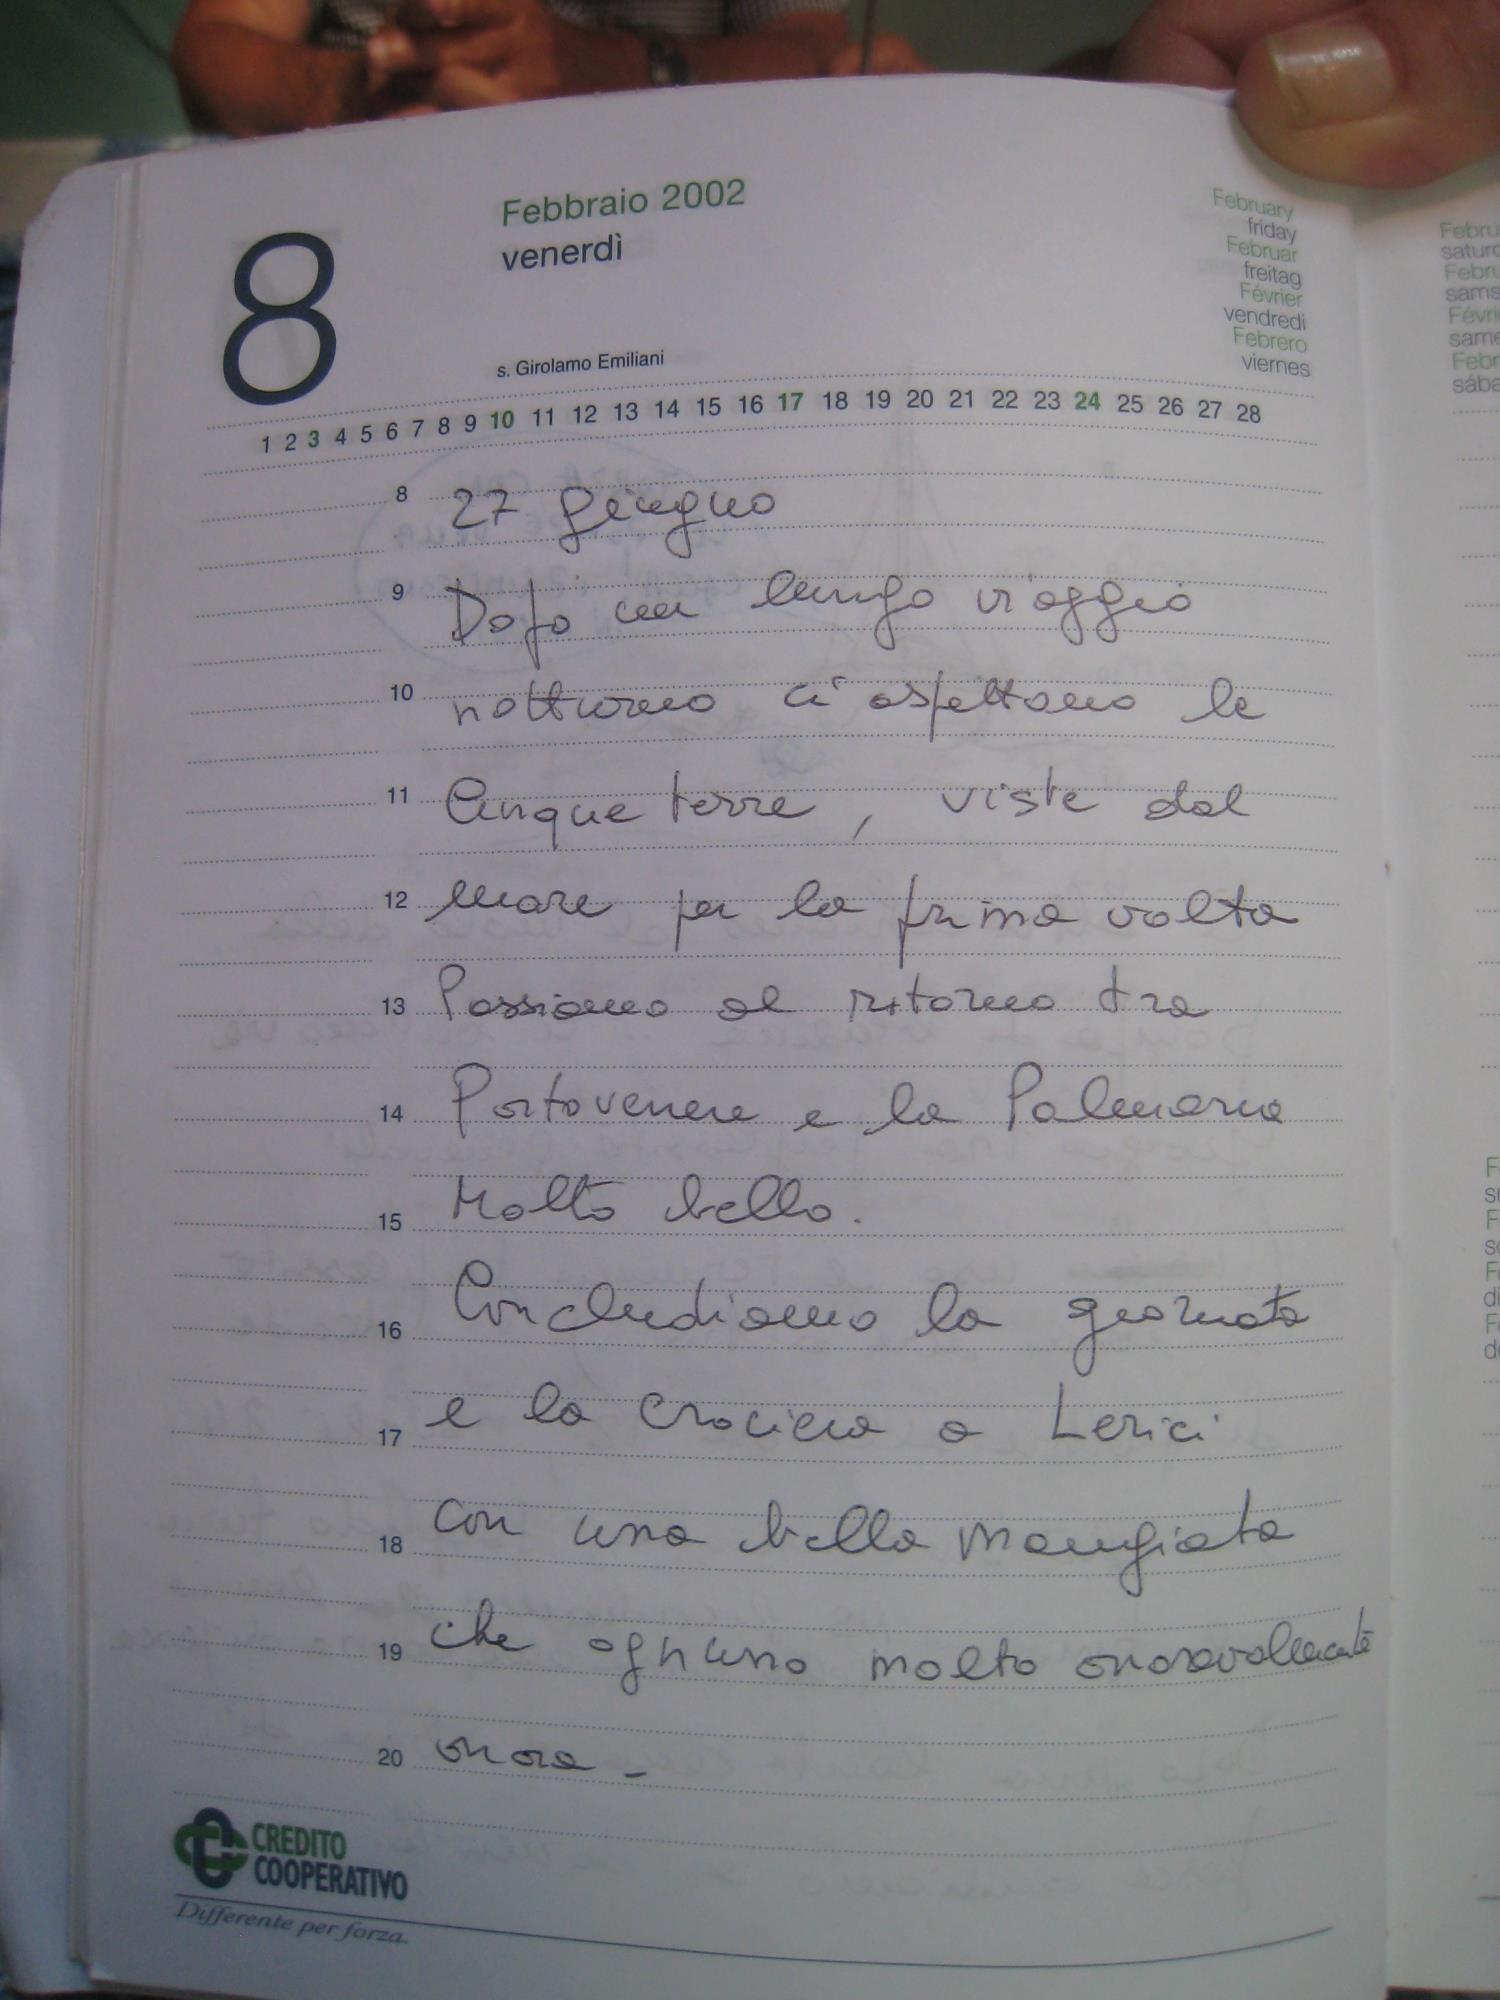 8
Febbraio 2002
venerdì
s. Girolamo Emiliani
February
friday
Februar
freitag
Février
vendredi
Febrero
viernes
1 2 3 4 5 6 7 8 9 10 11 12 13 14 15 16 17 18 19 20 21 22 23 24 25 26 27 28
8 27 giugno
9 Dopo un lungo viaggio
10 notturno ci aspettano le
11 Cinque terre, viste dal
12 mare per la prima volta
13 Passiamo al ritorno tra
14 Portovenere e la Palmaria
15 Molto bello.
16 Concludiamo la giornata
17 e la crociera a Lerici
18 con una bella mangiata
19 che ognuno molto onorevolmente
20 onora -
CREDITO
COOPERATIVO
Differente per forza.